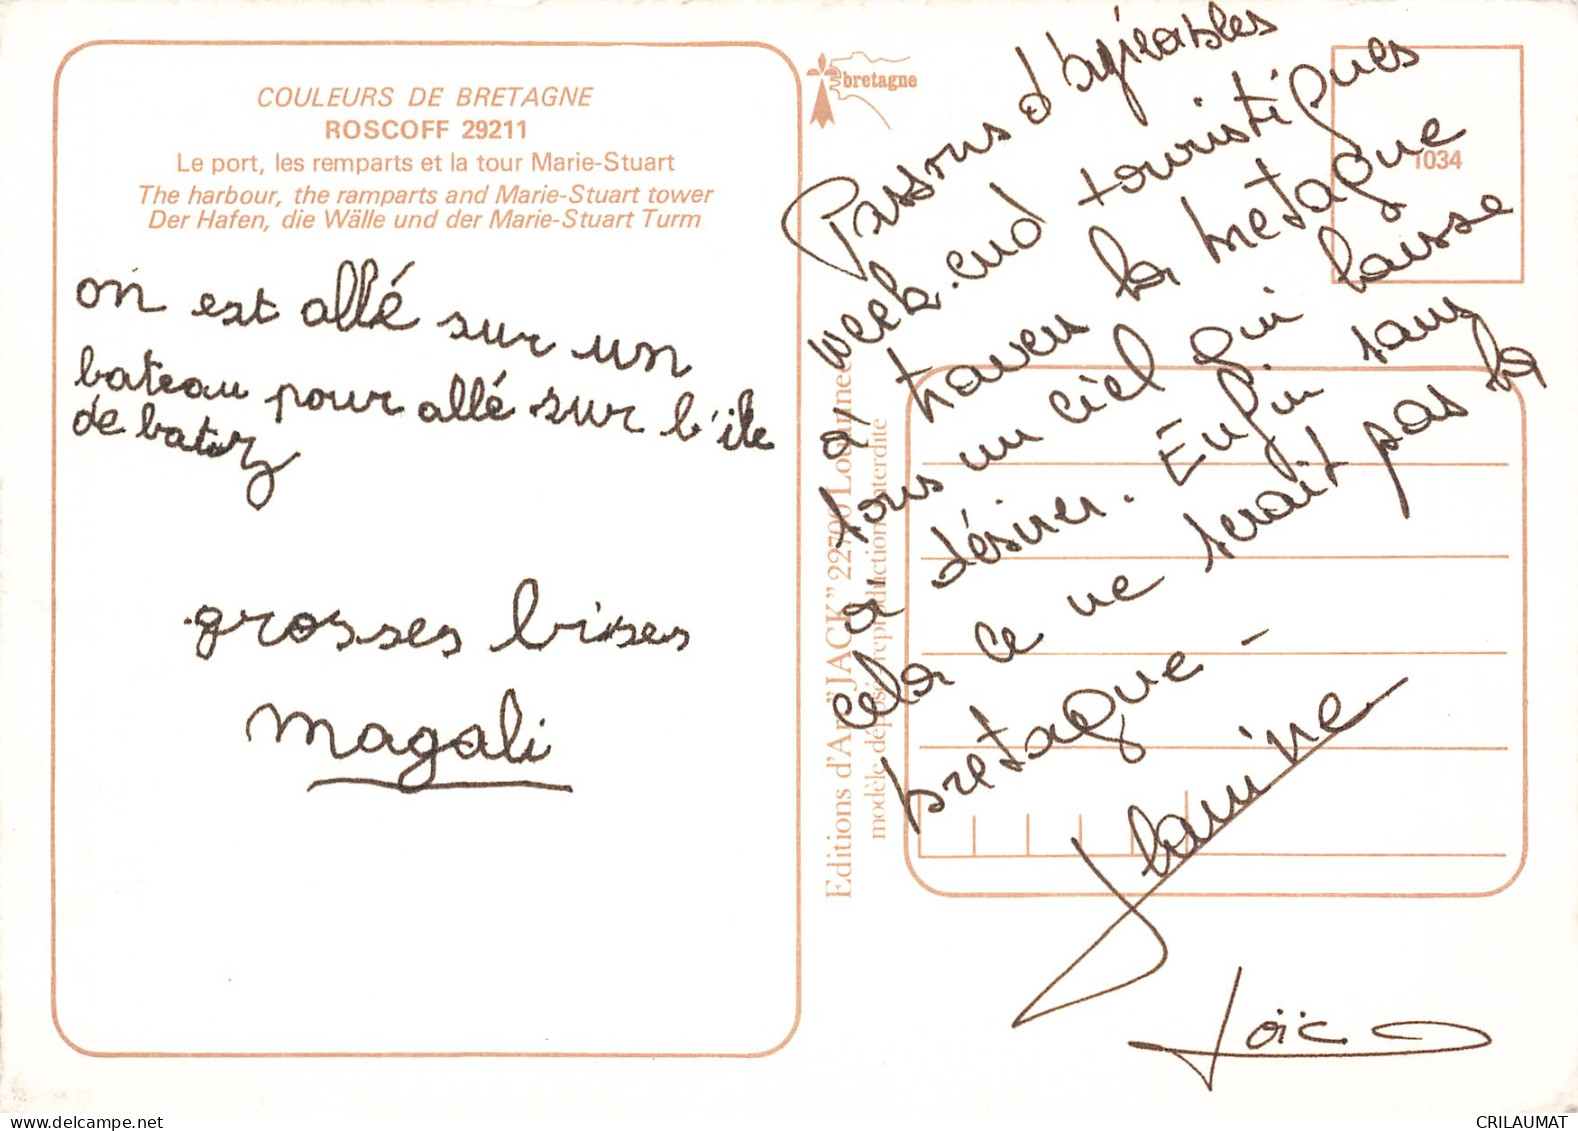 COULEURS DE BRETAGNE
ROSCOFF 29211
Le port, les remparts et la tour Marie-Stuart
The harbour, the ramparts and Marie-Stuart tower
Der Hafen, die Wälle und der Marie-Stuart Turm
on est allé sur un
bateau pour allé sur l'ile
de batz
grosses bises
magali
bretagne
Editions d'Art "JACK" 22700 Louannec
modèle déposé, reproduction interdite
1034
Passons d'agréables
week.end touristiques
à travers la bretagne
sous un ciel qui laisse
à désirer. Enfin sans
cela ce ne serait pas la
bretagne -
Loïc
CRILAUMAT